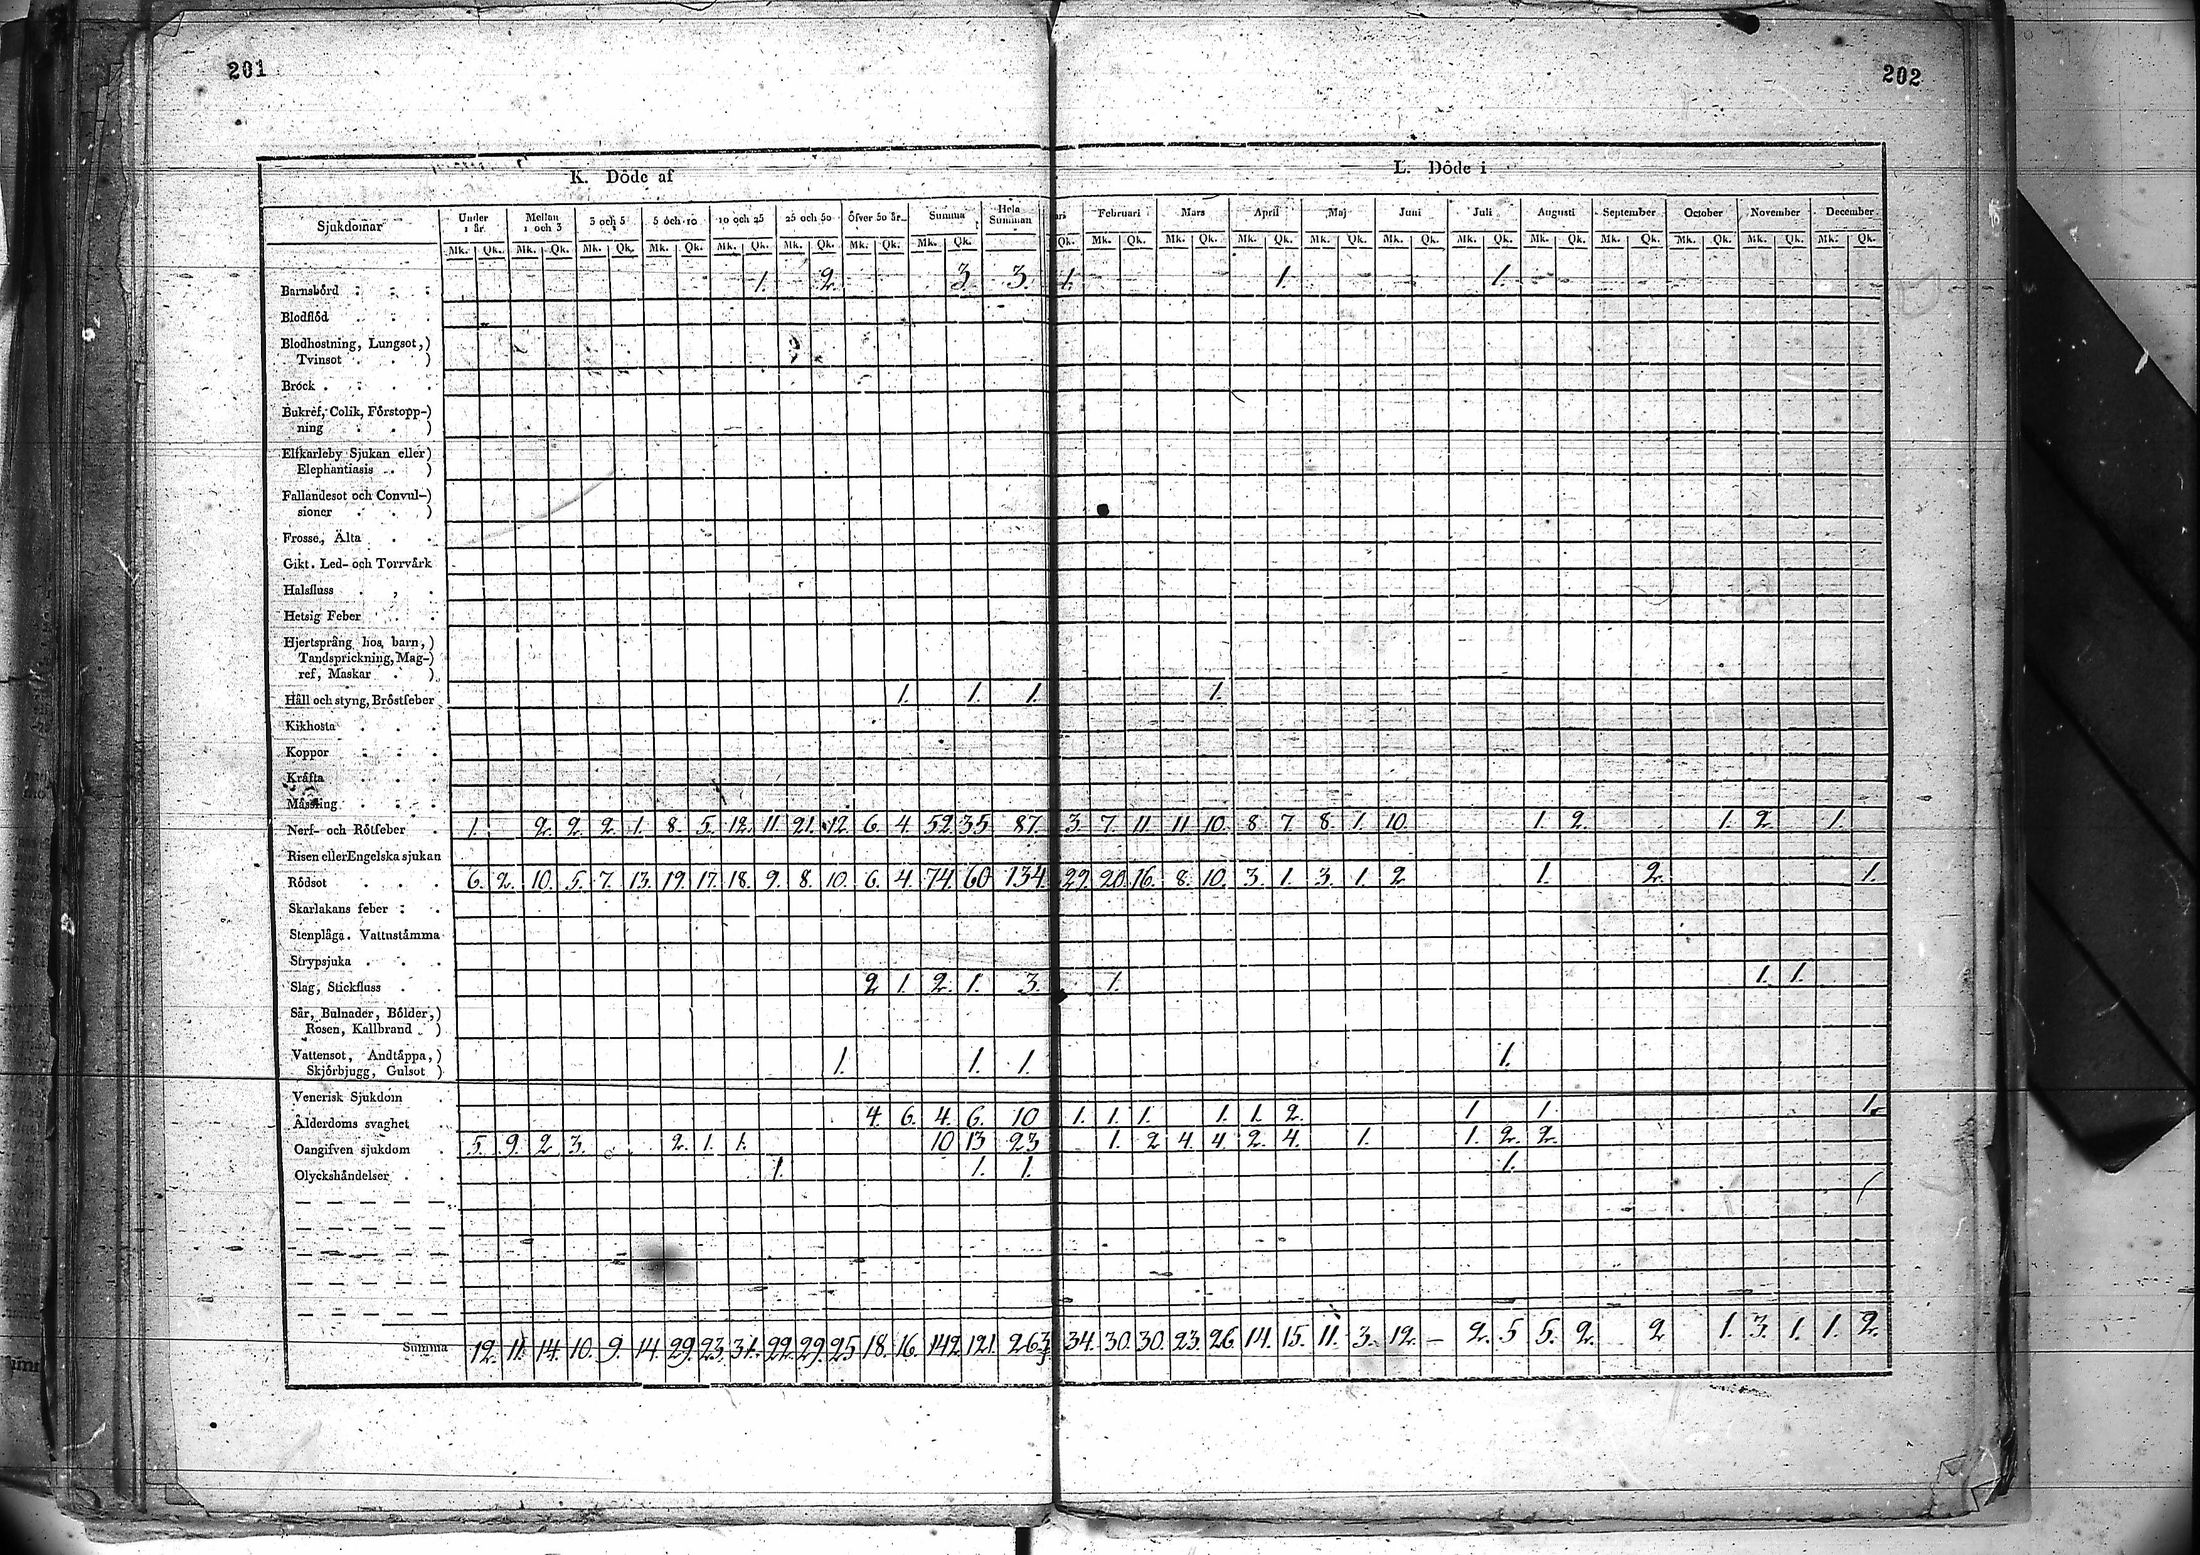 201
202
K. Döde af
L. Döde i
Sjukdomar Under 1 år. Mellan 1 och 3 3 och 5 5 och 10 10 och 25 25 och 50 öfver 50 år. Summa Hela Summan ari Februari Mars April Maj Juni Juli Augusti September October November December
Mk. Qk. Mk. Qk. Mk. Qk. Mk. Qk. Mk. Qk. Mk. Qk. Mk. Qk. Mk. Qk. Qk. Mk. Qk. Mk. Qk. Mk. Qk. Mk. Qk. Mk. Qk. Mk. Qk. Mk. Qk. Mk. Qk. Mk. Qk. Mk. Qk. Mk. Qk.
Barnsbörd 1. 2. 3. 3. 1. 1. 1.
Blodflöd
Blodhostning, Lungsot,)
Tvinsot )
Bröck
Bukref, Colik, Förstopp-)
ning )
Elfkarleby Sjukan eller)
Elephantiasis )
Fallandesot och Convul-)
sioner )
Frosse, Älta
Gikt. Led- och Torrvärk
Halsfluss
Hetsig Feber
Hjertsprång hos barn,)
Tandsprickning, Mag-)
ref, Maskar )
Håll och styng, Bröstfeber 1. 1. 1. 1.
Kikhosta
Koppor
Kräfta
Mässling
Nerf- och Rötfeber 1. 2. 2. 2. 1. 8. 5. 12. 11. 21. 12. 6. 4. 52. 35. 87. 3. 7. 11. 11. 10. 8. 7. 8. 1. 10. 1. 2. 1. 2. 1.
Risen eller Engelska sjukan
Rödsot 6. 2. 10. 5. 7. 13. 19. 17. 18. 9. 8. 10. 6. 4. 74. 60 134. 29. 20. 16. 8. 10. 3. 1. 3. 1. 2 1. 2. 1.
Skarlakans feber
Stenplåga. Vattustämma
Strypsjuka
Slag, Stickfluss 2 1. 2. 1. 3. 1. 1. 1.
Sår, Bulnader, Bölder,)
Rosen, Kallbrand )
Vattensot, Andtäppa,)
Skjörbjugg, Gulsot ) 1. 1. 1. 1.
Venerisk Sjukdom
Ålderdoms svaghet 4. 6. 4. 6. 10 1. 1. 1. 1. 1. 2. 1. 1. 1.
Oangifven sjukdom 5. 9. 2 3. 2. 1. 1. 10 13 23 1. 2 4. 4. 2. 4. 1. 1. 2. 2.
Olyckshändelser 1. 1. 1. 1.
Summa 12. 11. 14. 10. 9. 14. 29. 23. 31. 22. 29. 25 18. 16. 142 121. 263 34. 30. 30. 23. 26. 14. 15. 11. 3. 12. – 2. 5 5. 2. 2 1. 3. 1. 1. 2.